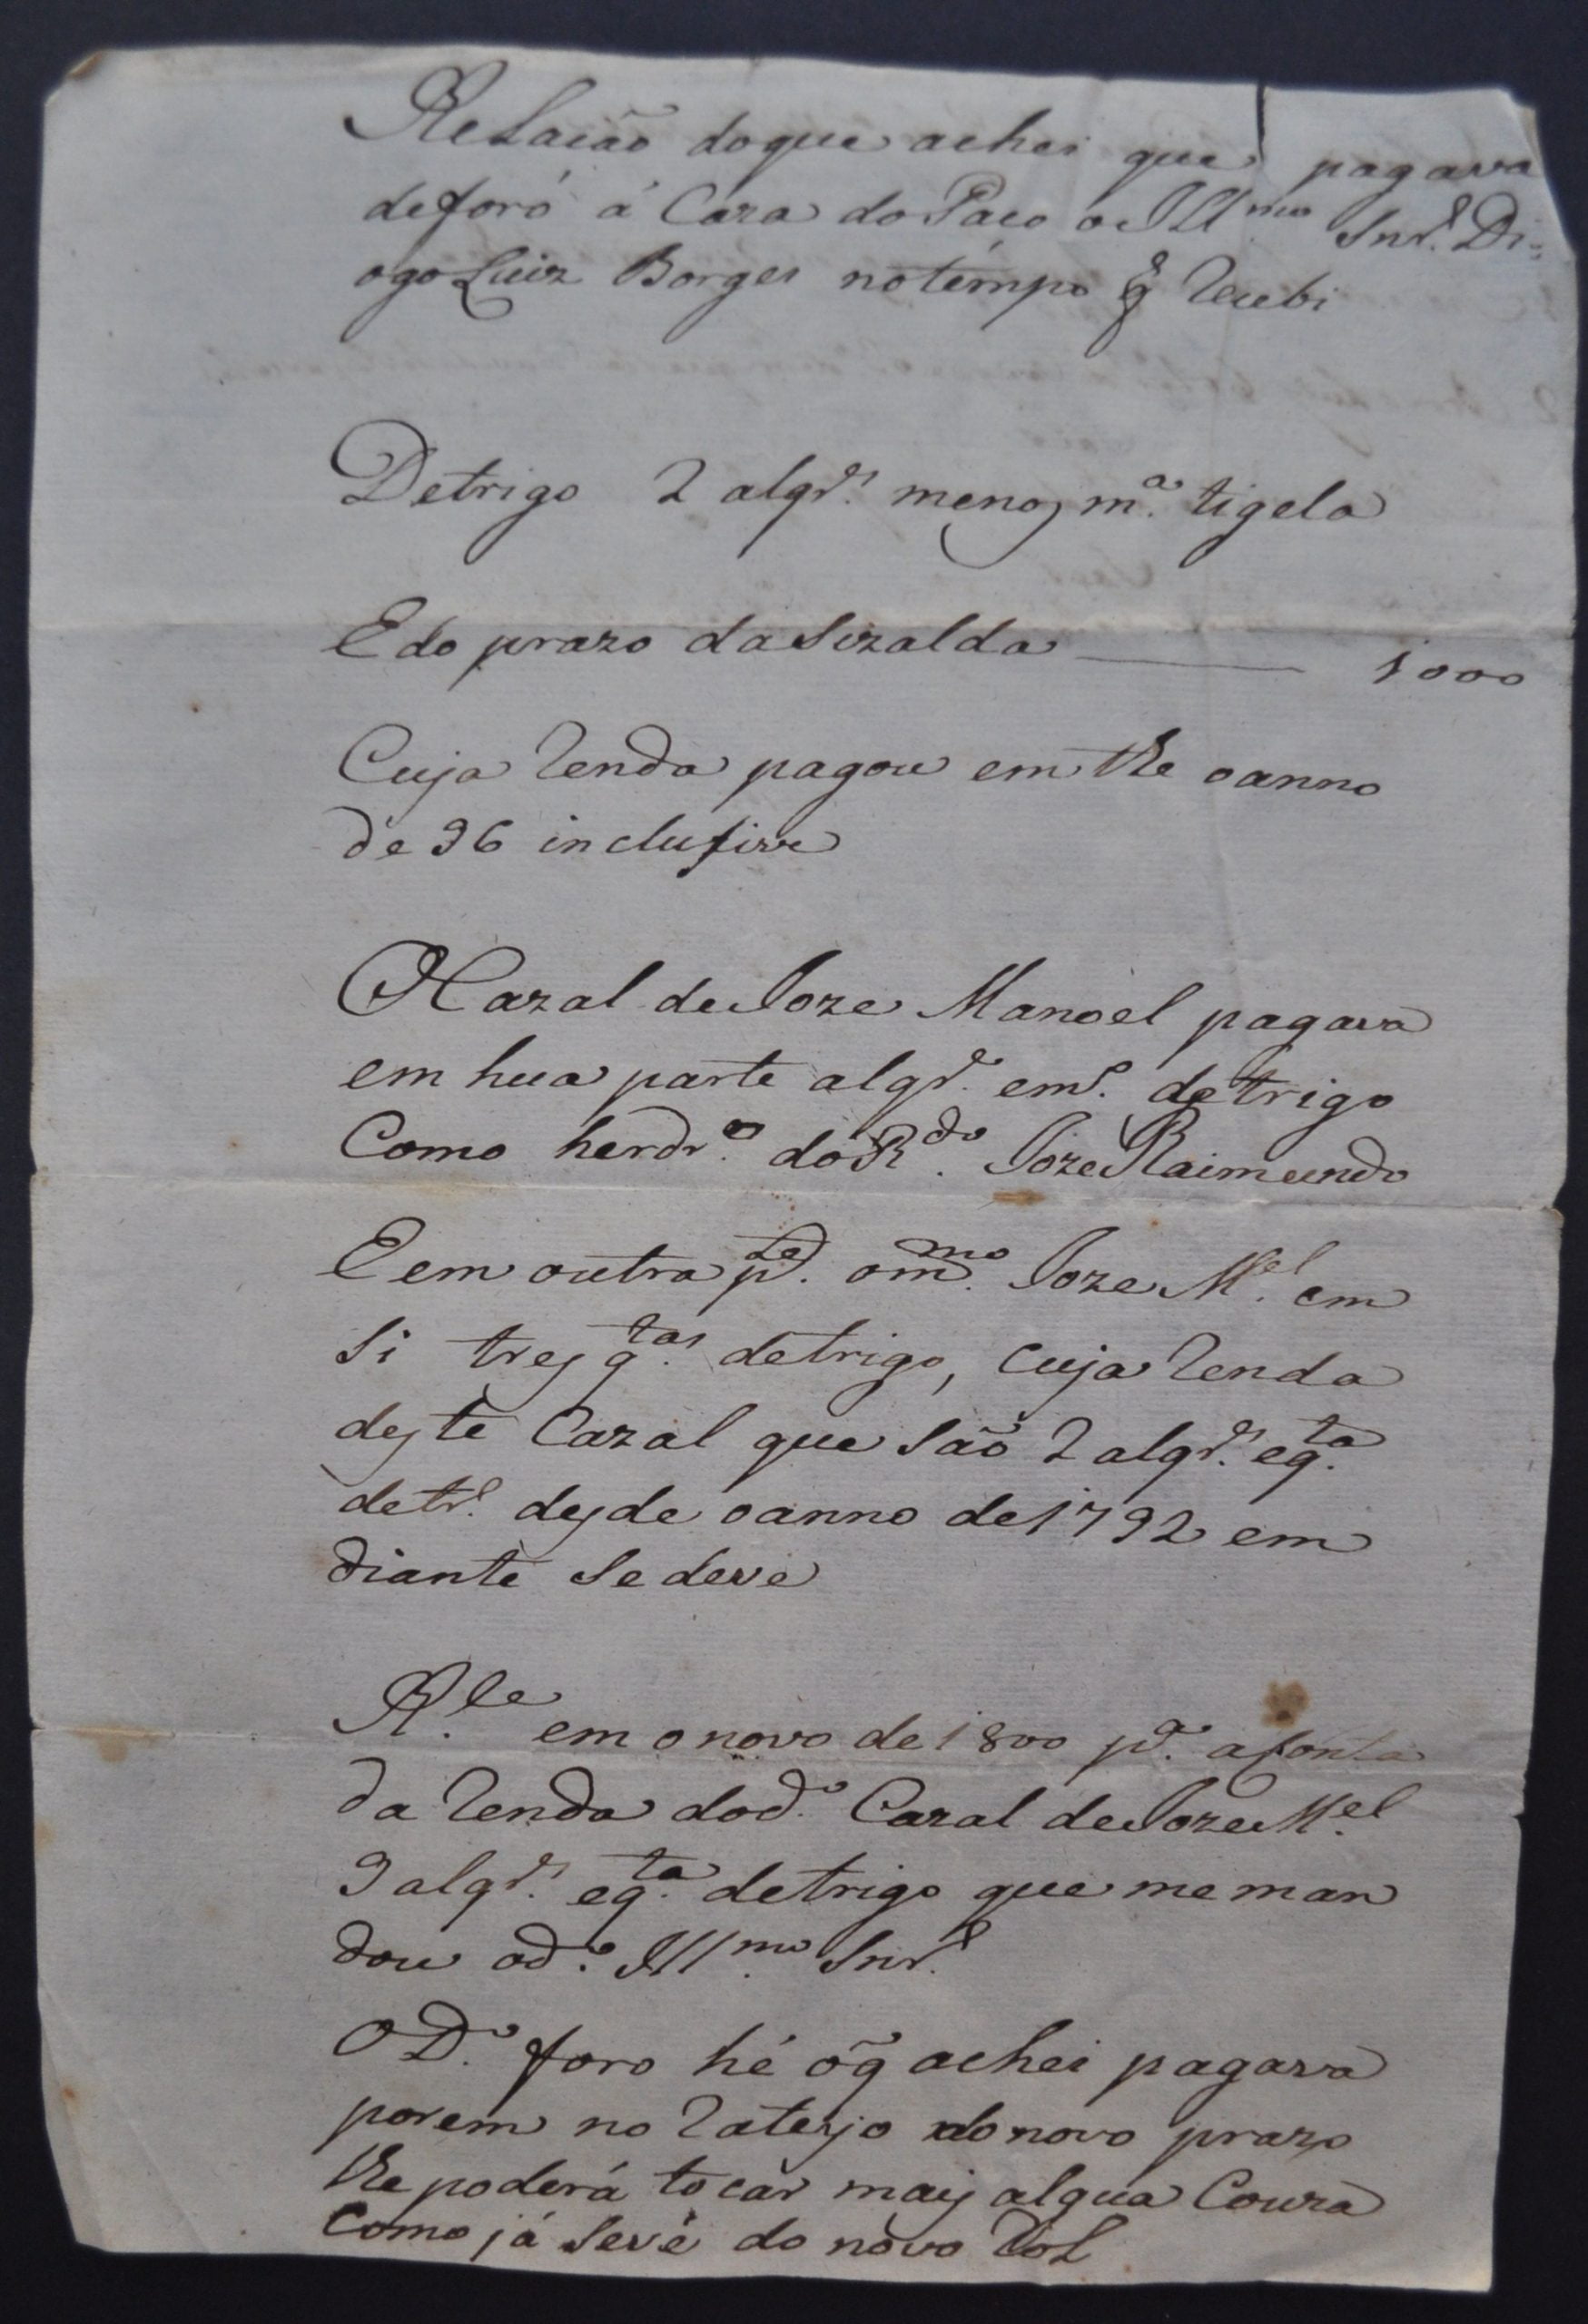 Relacão do que achei que pagava
de foro á Caza do Paco o Illmo Snr. Di=
ogo Luiz Borges no tempo q̃ Recebi
De trigo 2 alqr.s menos m.a tigela
E do prazo da Serzalda 1000
Cuja Renda pagou em the o anno
de 96 inclusive
O Cazal de Joze Manoel pagava
em hua parte alqr.e em.o de trigo
Como herdr.o do R.do Joze Raimundo
E em outra p.te o m.mo Joze M.el em
Si tres q.tas de trigo, cuja Renda
deste Cazal que são 2 alqr.s e q.ta
de tr.o desde o anno de 1792 em
diante Se deve
R.le em o novo de 1800 p.a a Conta
da Renda do d.o Cazal de Joze M.el
9 alqr.s e q.ta de trigo que me man
dou o d.o Ill.mo Snr.
O D.o foro hé o q̃ achei pagava
porem no Rateyo do novo prazo
lhe poderá tocar mais algua Couza
Como já Se vê do novo Rol